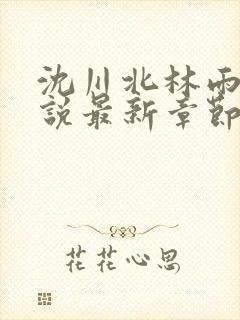 沈川北林雨
說最新章節
花花心思